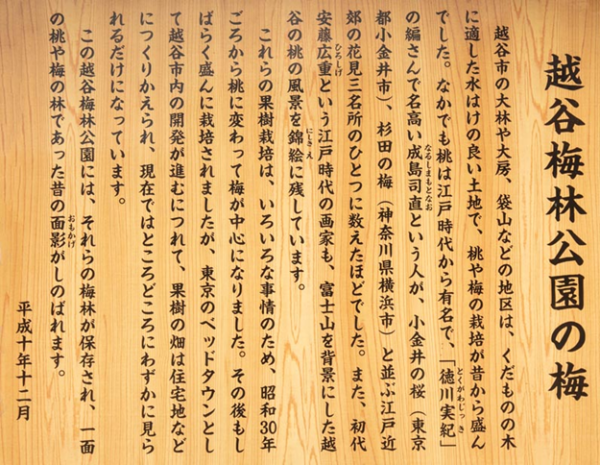 越谷梅林公園の梅
越谷市の大林や大房、袋山などの地区は、くだものの木
に適した水はけの良い土地で、桃や梅の栽培が昔から盛ん
でした。なかでも桃は江戸時代から有名で、「徳川実紀」
とくがわじっき
の編さんで名高い成島司直という人が、小金井の桜（東京
なるしまもとなお
都小金井市）、杉田の梅（神奈川県横浜市）と並ぶ江戸近
郊の花見三名所のひとつに数えたほどでした。また、初代
安藤広重という江戸時代の画家も、富士山を背景にした越
ひろしげ
谷の桃の風景を錦絵に残しています。
にしきえ
これらの果樹栽培は、いろいろな事情のため、昭和30年
ごろから桃に変わって梅が中心になりました。その後もし
ばらく盛んに栽培されましたが、東京のベッドタウンとし
て越谷市内の開発が進むにつれて、果樹の畑は住宅地など
につくりかえられ、現在ではところどころにわずかに見ら
れるだけになっています。
この越谷梅林公園には、それらの梅林が保存され、一面
の桃や梅の林であった昔の面影がしのばれます。
おもかげ
平成十年十二月